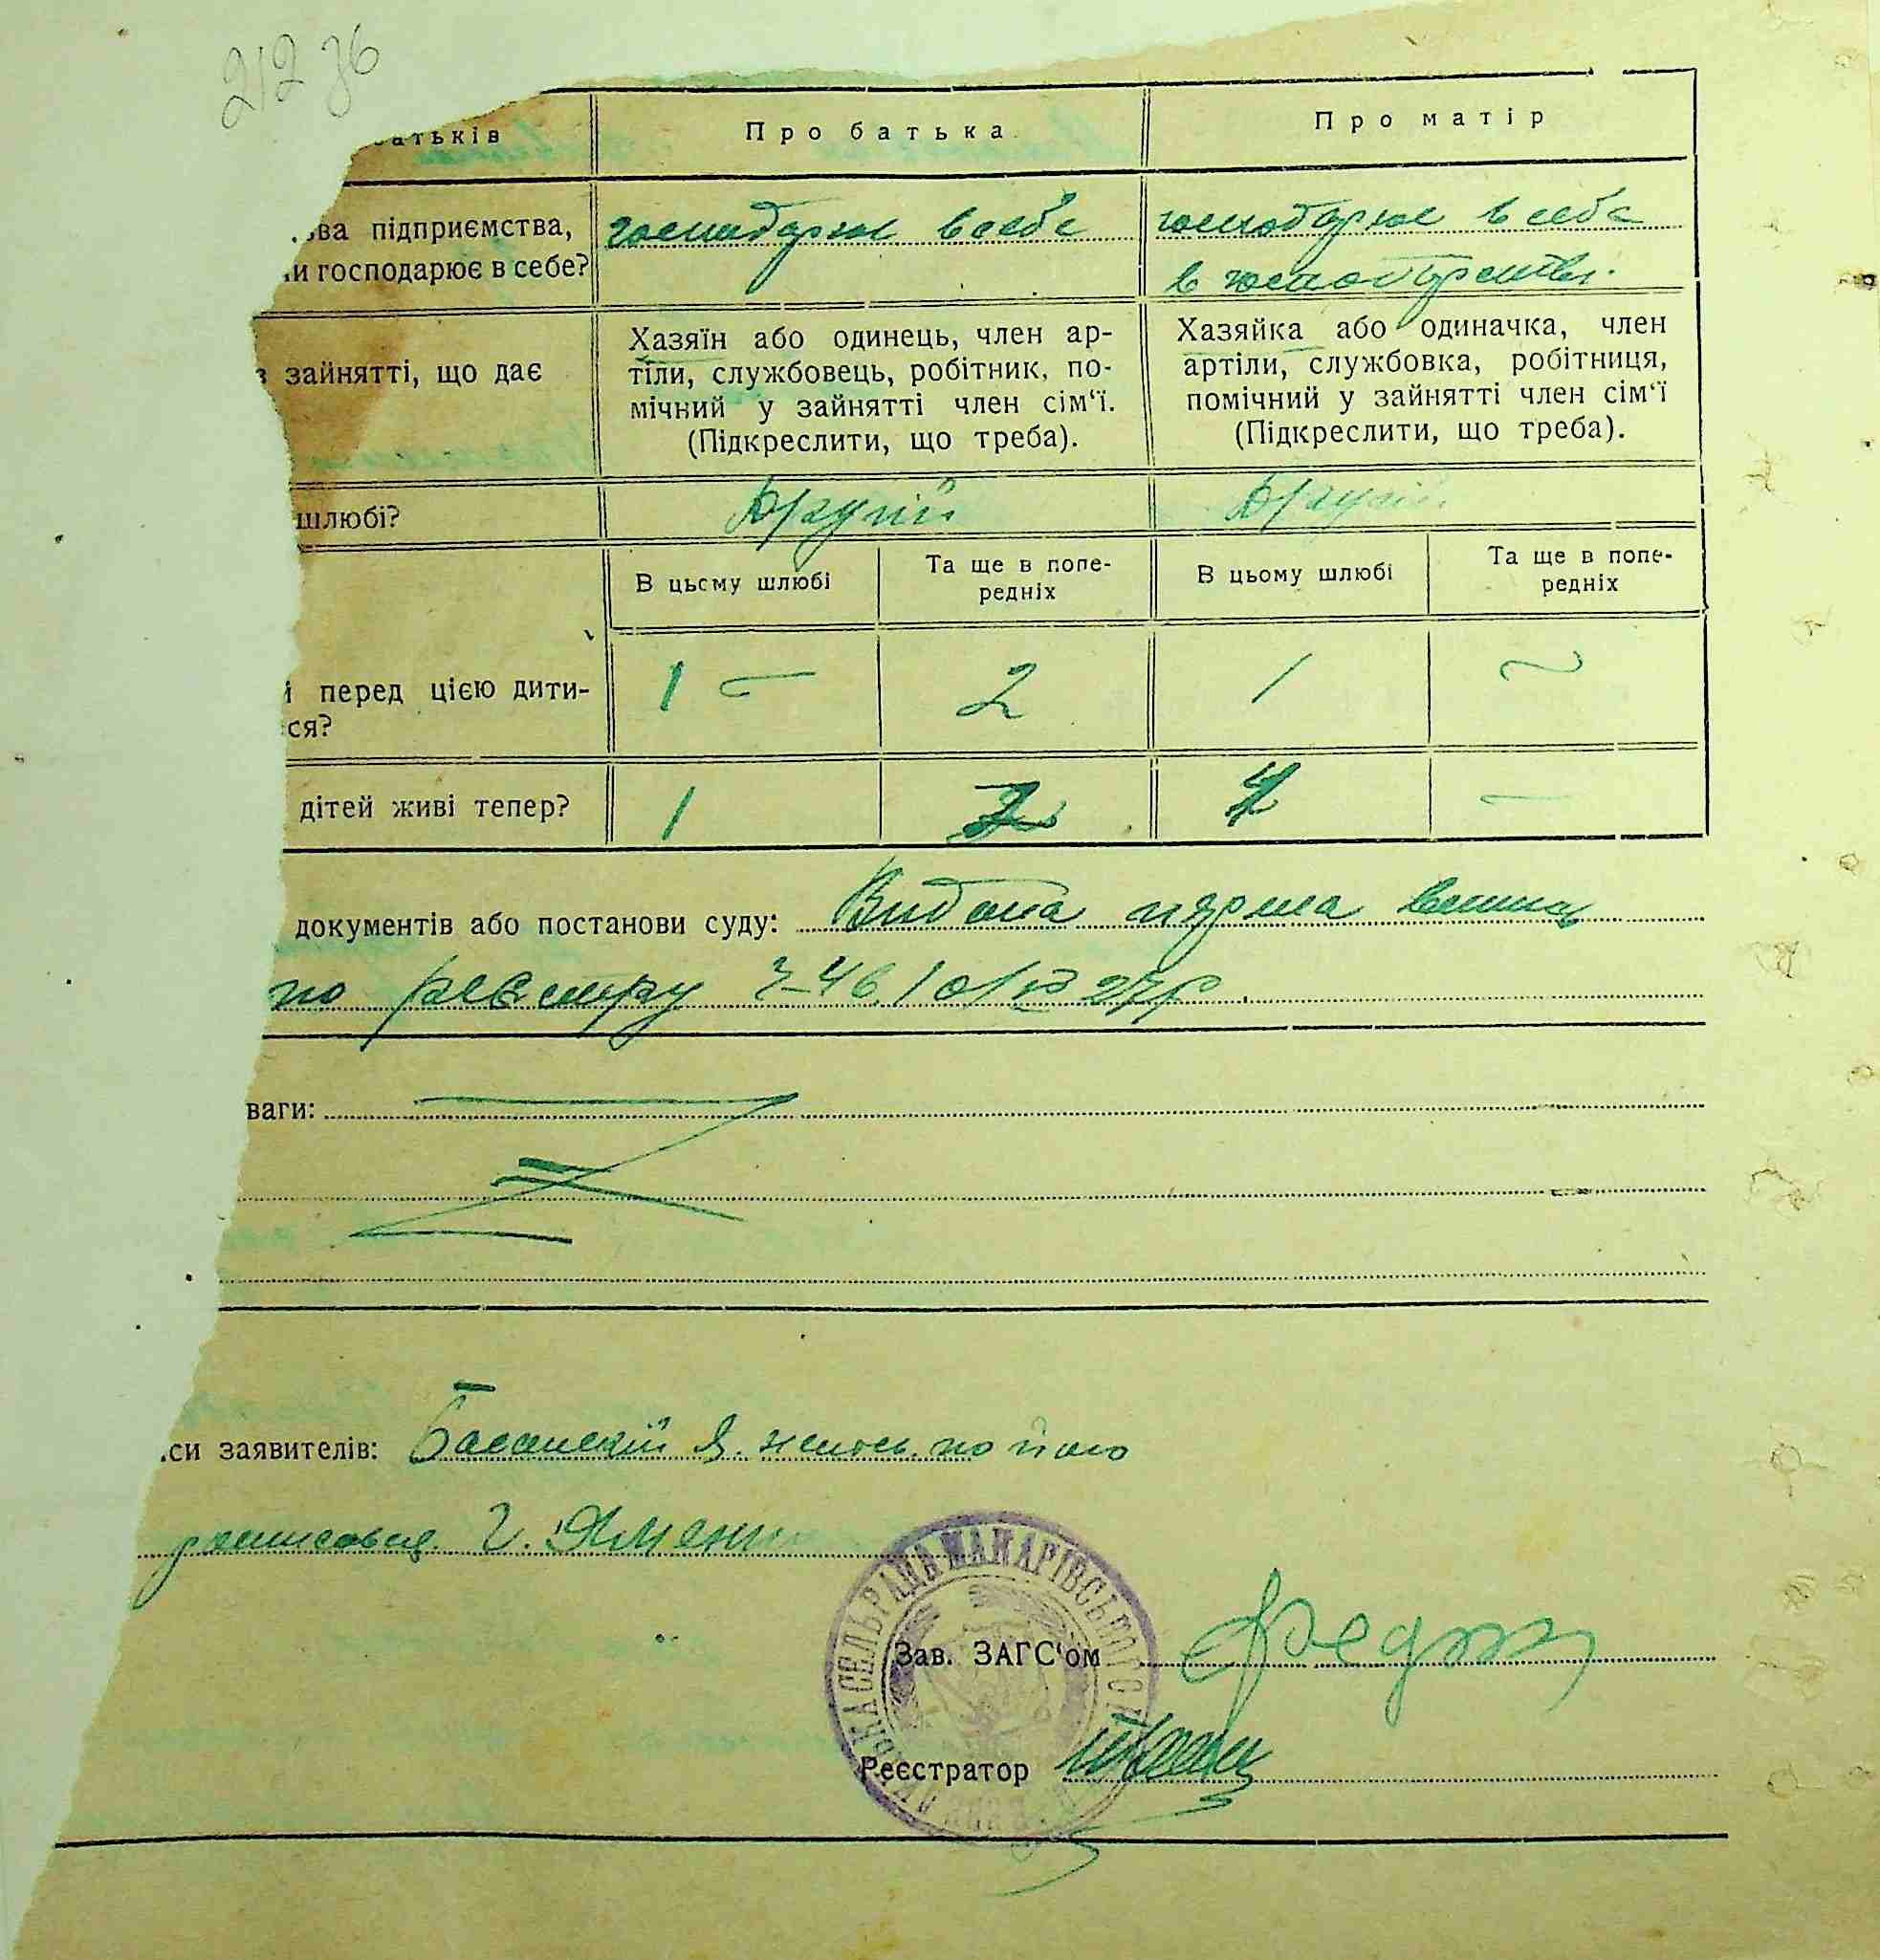 212 зб
атьків
Про батька
Про матір
ва підприємства,
и господарює в себе?
господарює в себе
господарює в себе
в господарстві.
з зайнятті, що дає
Хазяїн або одинець, член ар-
тіли, службовець, робітник, по-
мічний у зайнятті член сім‘ї.
(Підкреслити, що треба).
Хазяйка або одиначка, член
артіли, службовка, робітниця,
помічний у зайнятті член сім‘ї
(Підкреслити, що треба).
шлюбі?
Другий
Другий
В цьому шлюбі
Та ще в попе-
редніх
В цьому шлюбі
Та ще в попе-
редніх
і перед цією дити-
ся?
1 –
2
1
~
дітей живі тепер?
1
2
1
–
документів або постанови суду: Видана перша
по реєстру
ваги:
си заявителів: Басанский Я. по його
Г. Ямен
СЕЛЬРАДА ШАНДРІВСЬКОГО
Зав. ЗАГС‘ом
Реєстратор